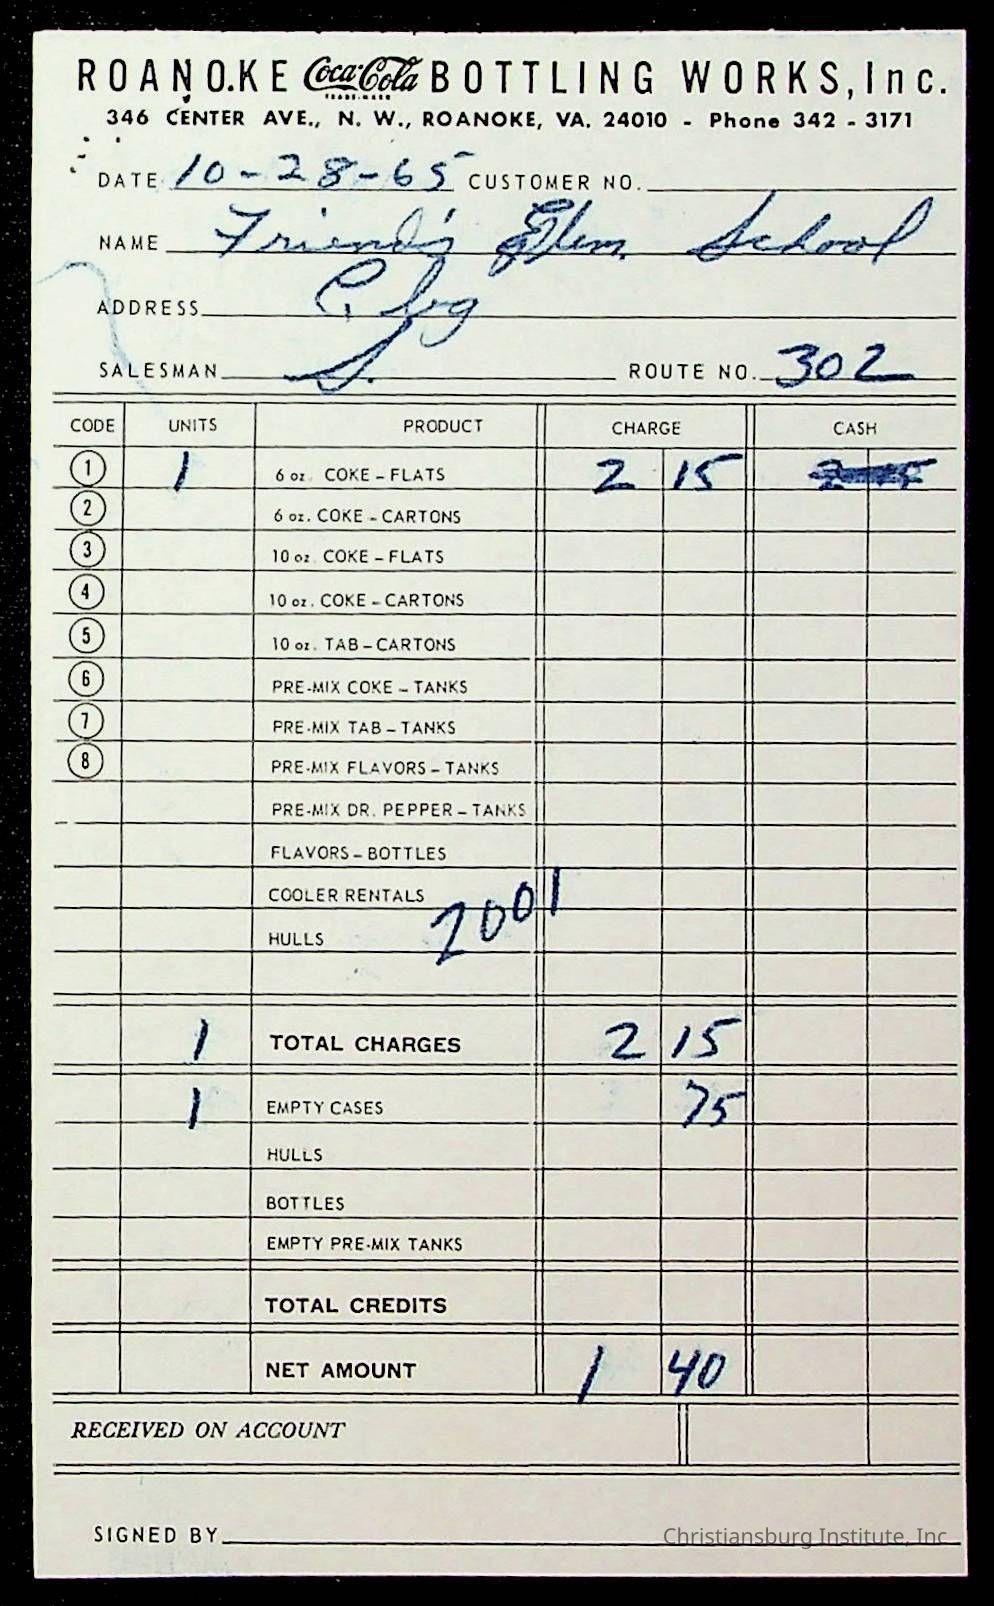 ROANOKE Coca-Cola BOTTLING WORKS, Inc.
TRADE-MARK
346 CENTER AVE., N. W., ROANOKE, VA. 24010 - Phone 342 - 3171
DATE 10-28-65 CUSTOMER NO.
NAME Friend's Elem. School
ADDRESS C. Sbg
SALESMAN S. ROUTE NO. 302
CODE UNITS PRODUCT CHARGE CASH
1 1 6 oz. COKE - FLATS 2 15
2 6 oz. COKE - CARTONS
3 10 oz. COKE - FLATS
4 10 oz. COKE - CARTONS
5 10 oz. TAB - CARTONS
6 PRE-MIX COKE - TANKS
7 PRE-MIX TAB - TANKS
8 PRE-MIX FLAVORS - TANKS
PRE-MIX DR. PEPPER - TANKS
FLAVORS - BOTTLES
COOLER RENTALS
2001
HULLS
1 TOTAL CHARGES 2 15
1 EMPTY CASES 75
HULLS
BOTTLES
EMPTY PRE-MIX TANKS
TOTAL CREDITS
NET AMOUNT 1 40
RECEIVED ON ACCOUNT
SIGNED BY
Christiansburg Institute, Inc